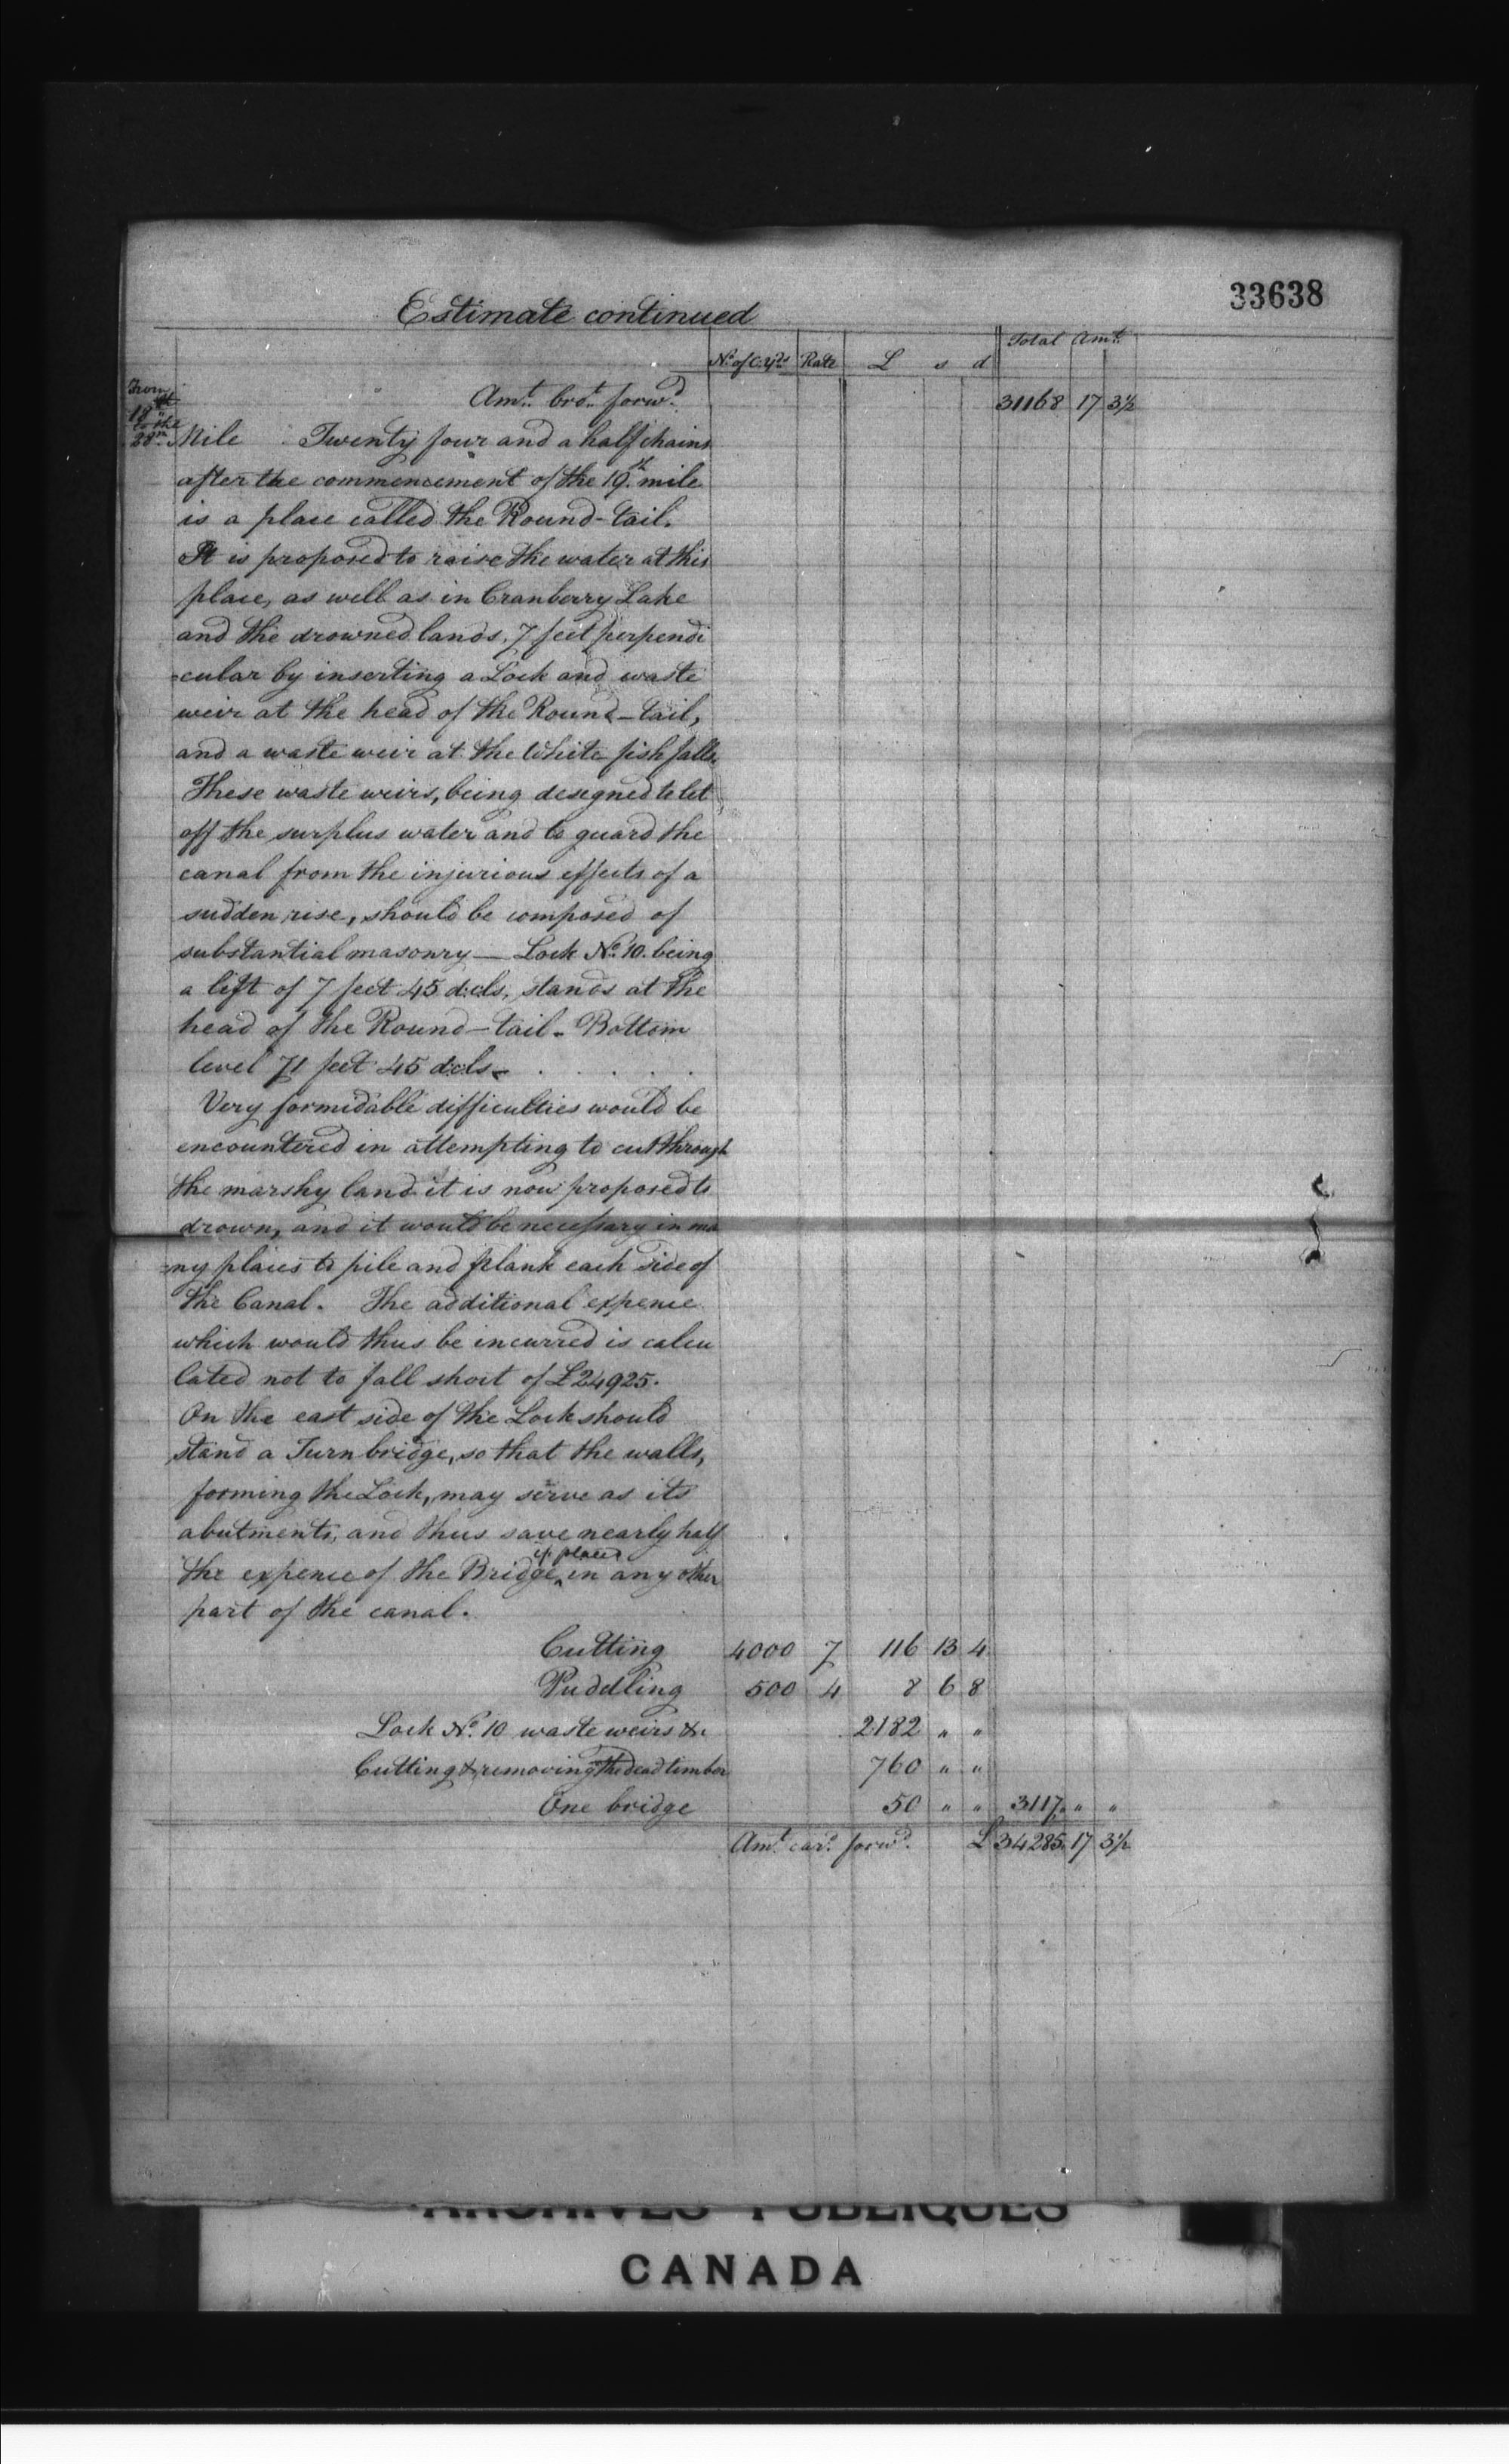 33638
Estimate continued
Total Amt.
No. of C. Yds Rate L s d
Amt. brot. forwd. 31168 17 3½
From
18th
to the
28th. Mile Twenty four and a half chains
after the commencement of the 19th. mile
is a place called the Round-tail.
It is proposed to raise the water at this
place, as well as in Cranberry Lake
and the drowned lands, 7 feet perpendi
=cular by inserting a Lock and waste
weir at the head of the Round-tail,
and a waste weir at the White fish falls.
These waste weirs, being designed to let
off the surplus water and to guard the
canal from the injurious effects of a
sudden rise, should be composed of
substantial masonry — Lock No. 10. being
a lift of 7 feet 45 dcls, stands at the
head of the Round-tail - Bottom
level 71 feet 45 dcls - . . . . .
Very formidable difficulties would be
encountered in attempting to cut through
the marshy land it is now proposed to
drown, and it would be necessary in ma
=ny places to pile and plank each side of
the Canal. The additional expence
which would thus be incurred is calcu
lated not to fall short of £24925.
On the east side of the Lock should
stand a Turnbridge, so that the walls,
forming the Lock, may serve as its
abutments, and thus save nearly half
if placed
the expence of the Bridge, in any other
part of the canal.
Cutting 4000 7 116 13 4
Puddling 500 4 8 6 8
Lock No. 10 waste weirs &c 2182 " "
Cutting & removing the dead timber 760 " "
One bridge 50 " " 3117 " "
Amt. card. forwd. £34285. 17 3½
ARCHIVES PUBLIQUES
CANADA